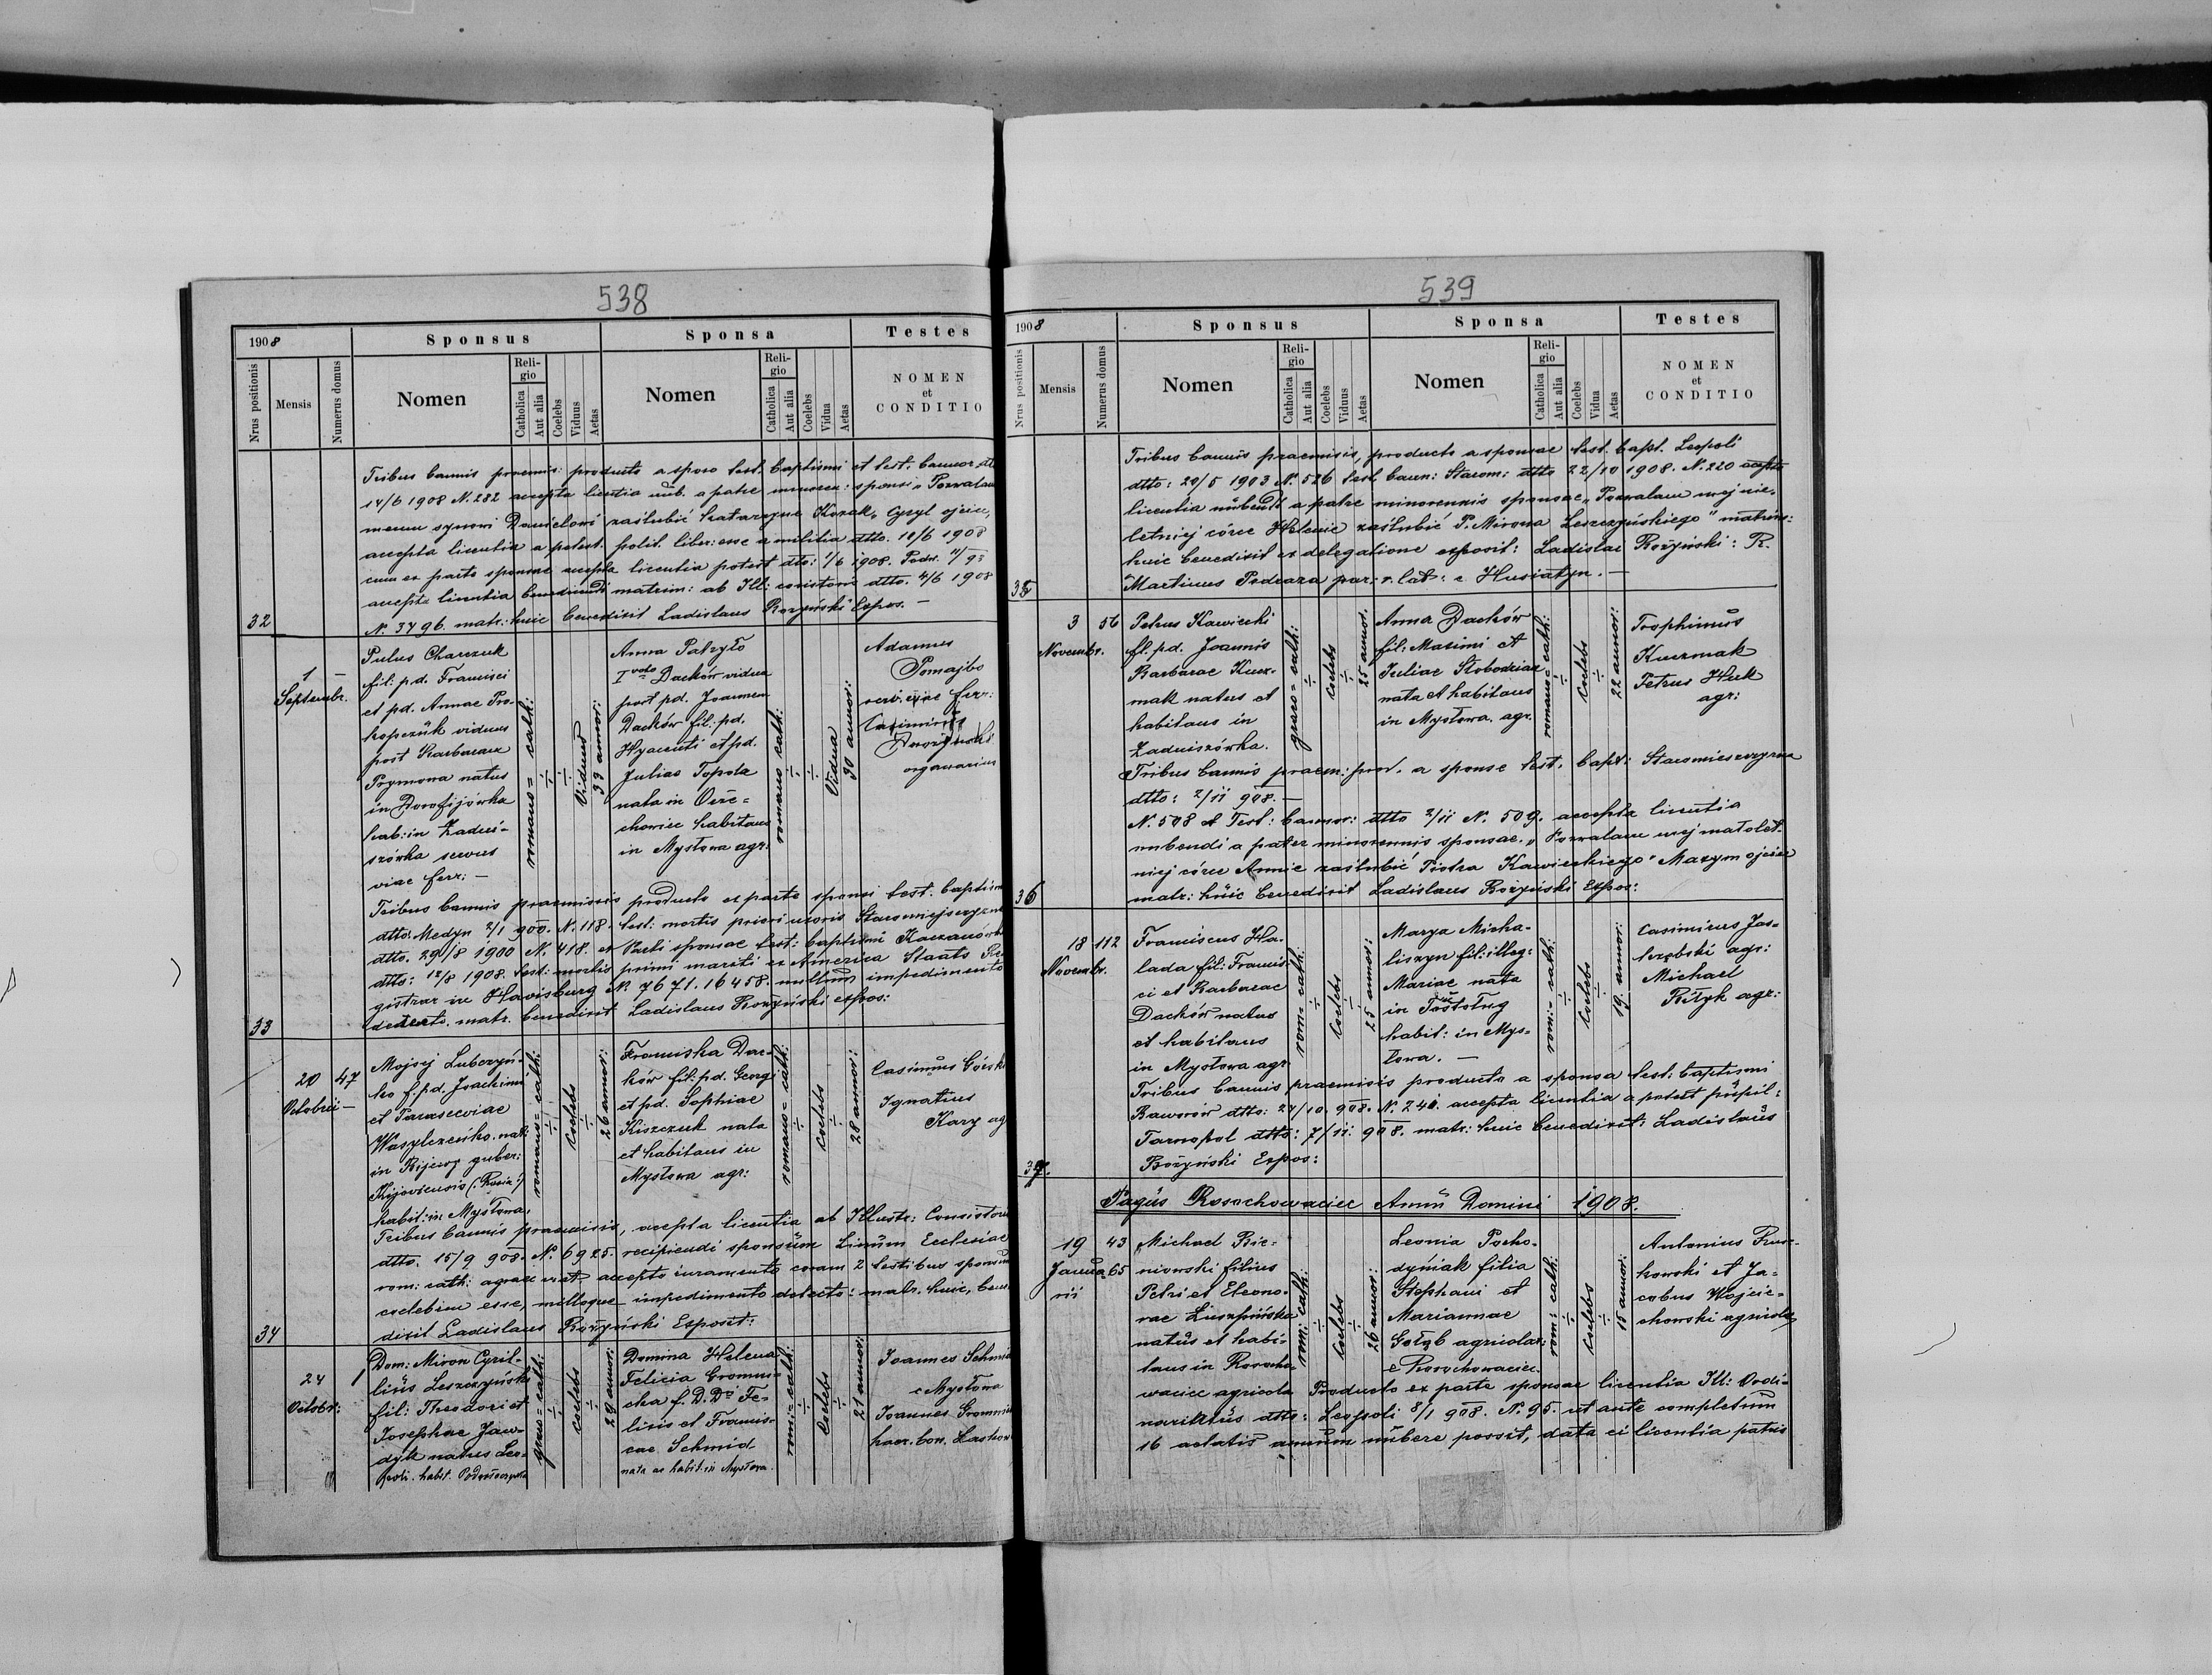 538
1908
Sponsus
Sponsa
Testes
Nrus positionis
Mensis
Numerus domus
Nomen
Religio
Catholica
Aut alia
Coelebs
Viduus
Aetas
Nomen
Religio
Catholica
Aut alia
Coelebs
Vidua
Aetas
NOMEN
et
CONDITIO
Tribus bannis praemis: producto a sposo test. baptismi et test. bannor.
14/6 1908 N. 282 accepta licentia nub. a patre minoren: sponsi „Pozwalam
memu synowi Danielowi zaślubić Katarzynę Kozak„ Cyryl ojciec,
accepta licentia a potest. polit. liber: esse a militia dtto. 11/6 1908
cum ex parte sponsae accepta licentia potest dtto: 1/6 1908.
accepta licentia benedicendi matrim: ab Ill: consistorio dtto. 4/6 1908
N. 3496. matr: huic benedixit Ladislaus Rożyński Expos. —
32
1
Septembr.
—
Paulus Charczuk
fil: p.d. Francisci
et pd. Annae Pro-
kopczuk viduus
post Barbaram
Prymona natus
in Dorofijówka
hab: in Zadni-
szówka servus
viae ferr: —
romano = cath:
÷
÷
Viduus
33 annor:
Anna Patryło
I voto Daćków vidua
post pd. Joannem
Daćków fil. pd.
Hyacinti et pd.
Juliae Topola
nata in Orze-
chowiec habitans
in Mysłowa agr.
romano cath:
÷
÷
Vidua
30 annor:
Adamus
Pomajbo
servi viae ferr:
Casimirus
organarius
Tribus bannis praemissis producto ex parte sponsi test. baptism
dtto: Medyn 2/1 900. N. 118. test: mortis priori uxoris Staromiejszczyzna
dtto. 29/8 1900 N. 418. ex Parti sponsae test: baptismi Kaczanówka
dtto: 12/8 1908. test: mortis primi mariti ex America Staats Re-
gistrar in Havisburg N. 7671. 16458. nullum impedimento
detecto. matr. benedixit Ladislaus Rożyński expos:
33
20
Octobris
47
—
Mojsej Lubczyń-
ko f. p.d. Joachimi
et Parasceviae
Wasylczeńko. nat:
in Kijew guber:
Kijoviensis (: Rosia :)
habit: in Mysłowa.
romano = cath:
÷
Coelebs
÷
26 annor:
Franciska Dać-
ków fil: pd. Georgi
et pd. Sophiae
Kiszczuk nata
et habitans in
Mysłowa agr:
romano = cath:
÷
Coelebs
÷
28 annor:
Casimirus Górski
Ignatius
Kary ag
Tribus bannis praemisis, accepta licentia ab Illustr: Consistorio
dtto. 15/9 908. N. 6925. recipiendi sponsum Sinum Ecclesiae
rom: cath: agraec et accepto iuramento coram 2 testibus sponsum
coelebem esse, nulloque impedimento detecto: matr. huic, bene-
dixit Ladislaus Rożyński Exposit:
34
24
Octobr:
1
Dom: Miron Cyril-
lius Leszczyński
fil: Theodori et
Josephae Jaw-
dyk natus Leo-
poli. habit. Podwołoczyska
graeco = cath:
÷
Coelebs
÷
29 annor:
Domina Helena
Felicia Gromni-
cka f. D. Dni Fe-
licis et Francis-
cae Schmid
nata ac habit: in Mysłowa.
rom: = cath:
÷
Coelebs
÷
21 annor:
Joannes Schmid
e Mysłowa
Joannes Gromnic
haer. bon.
539
1908
Sponsus
Sponsa
Testes
Nrus positionis
Mensis
Numerus domus
Nomen
Religio
Catholica
Aut alia
Coelebs
Viduus
Aetas
Nomen
Religio
Catholica
Aut alia
Coelebs
Vidua
Aetas
NOMEN
et
CONDITIO
Tribus bannis praemisis, producto a sponsae test. bapt. Leopoli
dtto: 20/5 1903 N. 526 test. bann: Starom: dtto 22/10 1908. N. 220 accepta
licentia nubendi a patre minorennis sponsae „Pozwalam mej nie-
letniej córce Helenie zaślubić P. Mirona Leszczyńskiego" matrim:
huic benedixit ex delegatione exposit: Ladislai Rożyński: R.
Martinus Podraza par. r. lat: e Husiatyn. —
35
3
Novembr.
56
Petrus Kawiecki
fl. pd. Joannis
Barbarae Kucz-
mak natus et
habitans in
Zadniszówka.
graeco = cath:
÷
Coelebs
÷
25 annor.
Anna Daćków
fil: Maximi et
Juliae Słobodzian
nata et habitans
in Mysłowa. agr.
romano = cath:
÷
Coelebs
÷
22 annor:
Trophimus
Kuczmak
Petrus Huk
agr:
Tribus bannis praem: prod. a sponso test. bapt: Staromieszczyzna
dtto: 2/11 908. —
N. 508 et Test: bannor: dtto 2/11 N. 509. accepta licentia
nubendi a pater minorennis sponsae. „Pozwalam mej małolet-
niej córce Annie zaślubić Piotra Kawieckiego" Maxym ojciec
matr: huic benedixit Ladislaus Rożyński Expos:
36
18
Novembr.
112
Franciscus Ha-
lada fil: Francis-
ci et Barbarae
Daćków natus
et habitans
in Mysłowa agr
rom: = cath:
÷
Coelebs
÷
25 annor:
Marya Micha-
liszyn fil: illeg:
Mariae nata
in Tostoług
habit: in Mys-
łowa. —
rom: = cath:
÷
Coelebs
÷
19. annor:
Casimirus Jas-
trzębski agr:
Michael
Ryłyk agr:
Tribus bannis praemisis producto a sponsa test: baptismi
Baworów dtto: 24/10. 908. N. 240. accepta licentia a potest pupil:
Tarnopol dtto: 7/11. 908. matr: huic benedixit: Ladislaus
Rożyński Expos:
37.
Pagus Rosochowaciec Anni Domini 1908.
19
Janua-
rii
43
65
Michael Bie-
niowski filius
Petri et Eleono-
rae Liszpińska
natus et habi-
tans in Rosocho-
waciec agricola
rom: cath:
÷
Coelebs
÷
26 annor:
Leonia Pocho-
dyniak filia
Stephani et
Mariannae
Gołąb agricolae
e Rosochowaciec.
rom: cath:
÷
Coelebs
÷
15 annor:
Antonius Frus-
kowski et Ja-
cobus Wojcie-
chowski agricolae
Producto ex parte sponsae licentia Ill: Ordi-
nariatus dtto: Leopoli 8/1 908. N. 95. ut ante completum
16 aetatis annum nubere possit, data ei licentia patris